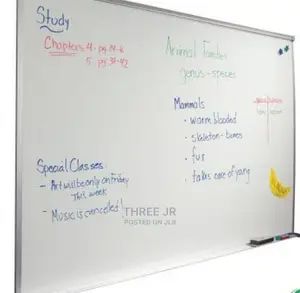 Study
Chapters 4-
5
Animal
genus - species
Mammals
• warm blooded
• skeleton - bones
• fur
• takes care of young
Special Classes:
- Art will be only on Friday
This week
- Music is cancelled!
THREE JR
POSTED ON JIJI